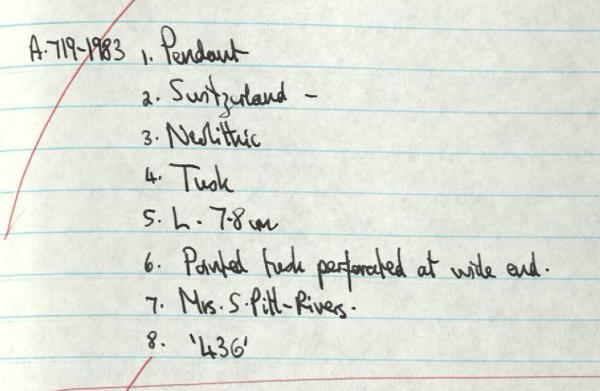 A.719-1983 1. Pendant
2. Switzerland -
3. Neolithic
4. Tusk
5. L. 7.8 cm
6. Pointed tusk perforated at wide end.
7. Mrs. S. Pitt-Rivers.
8. '436'